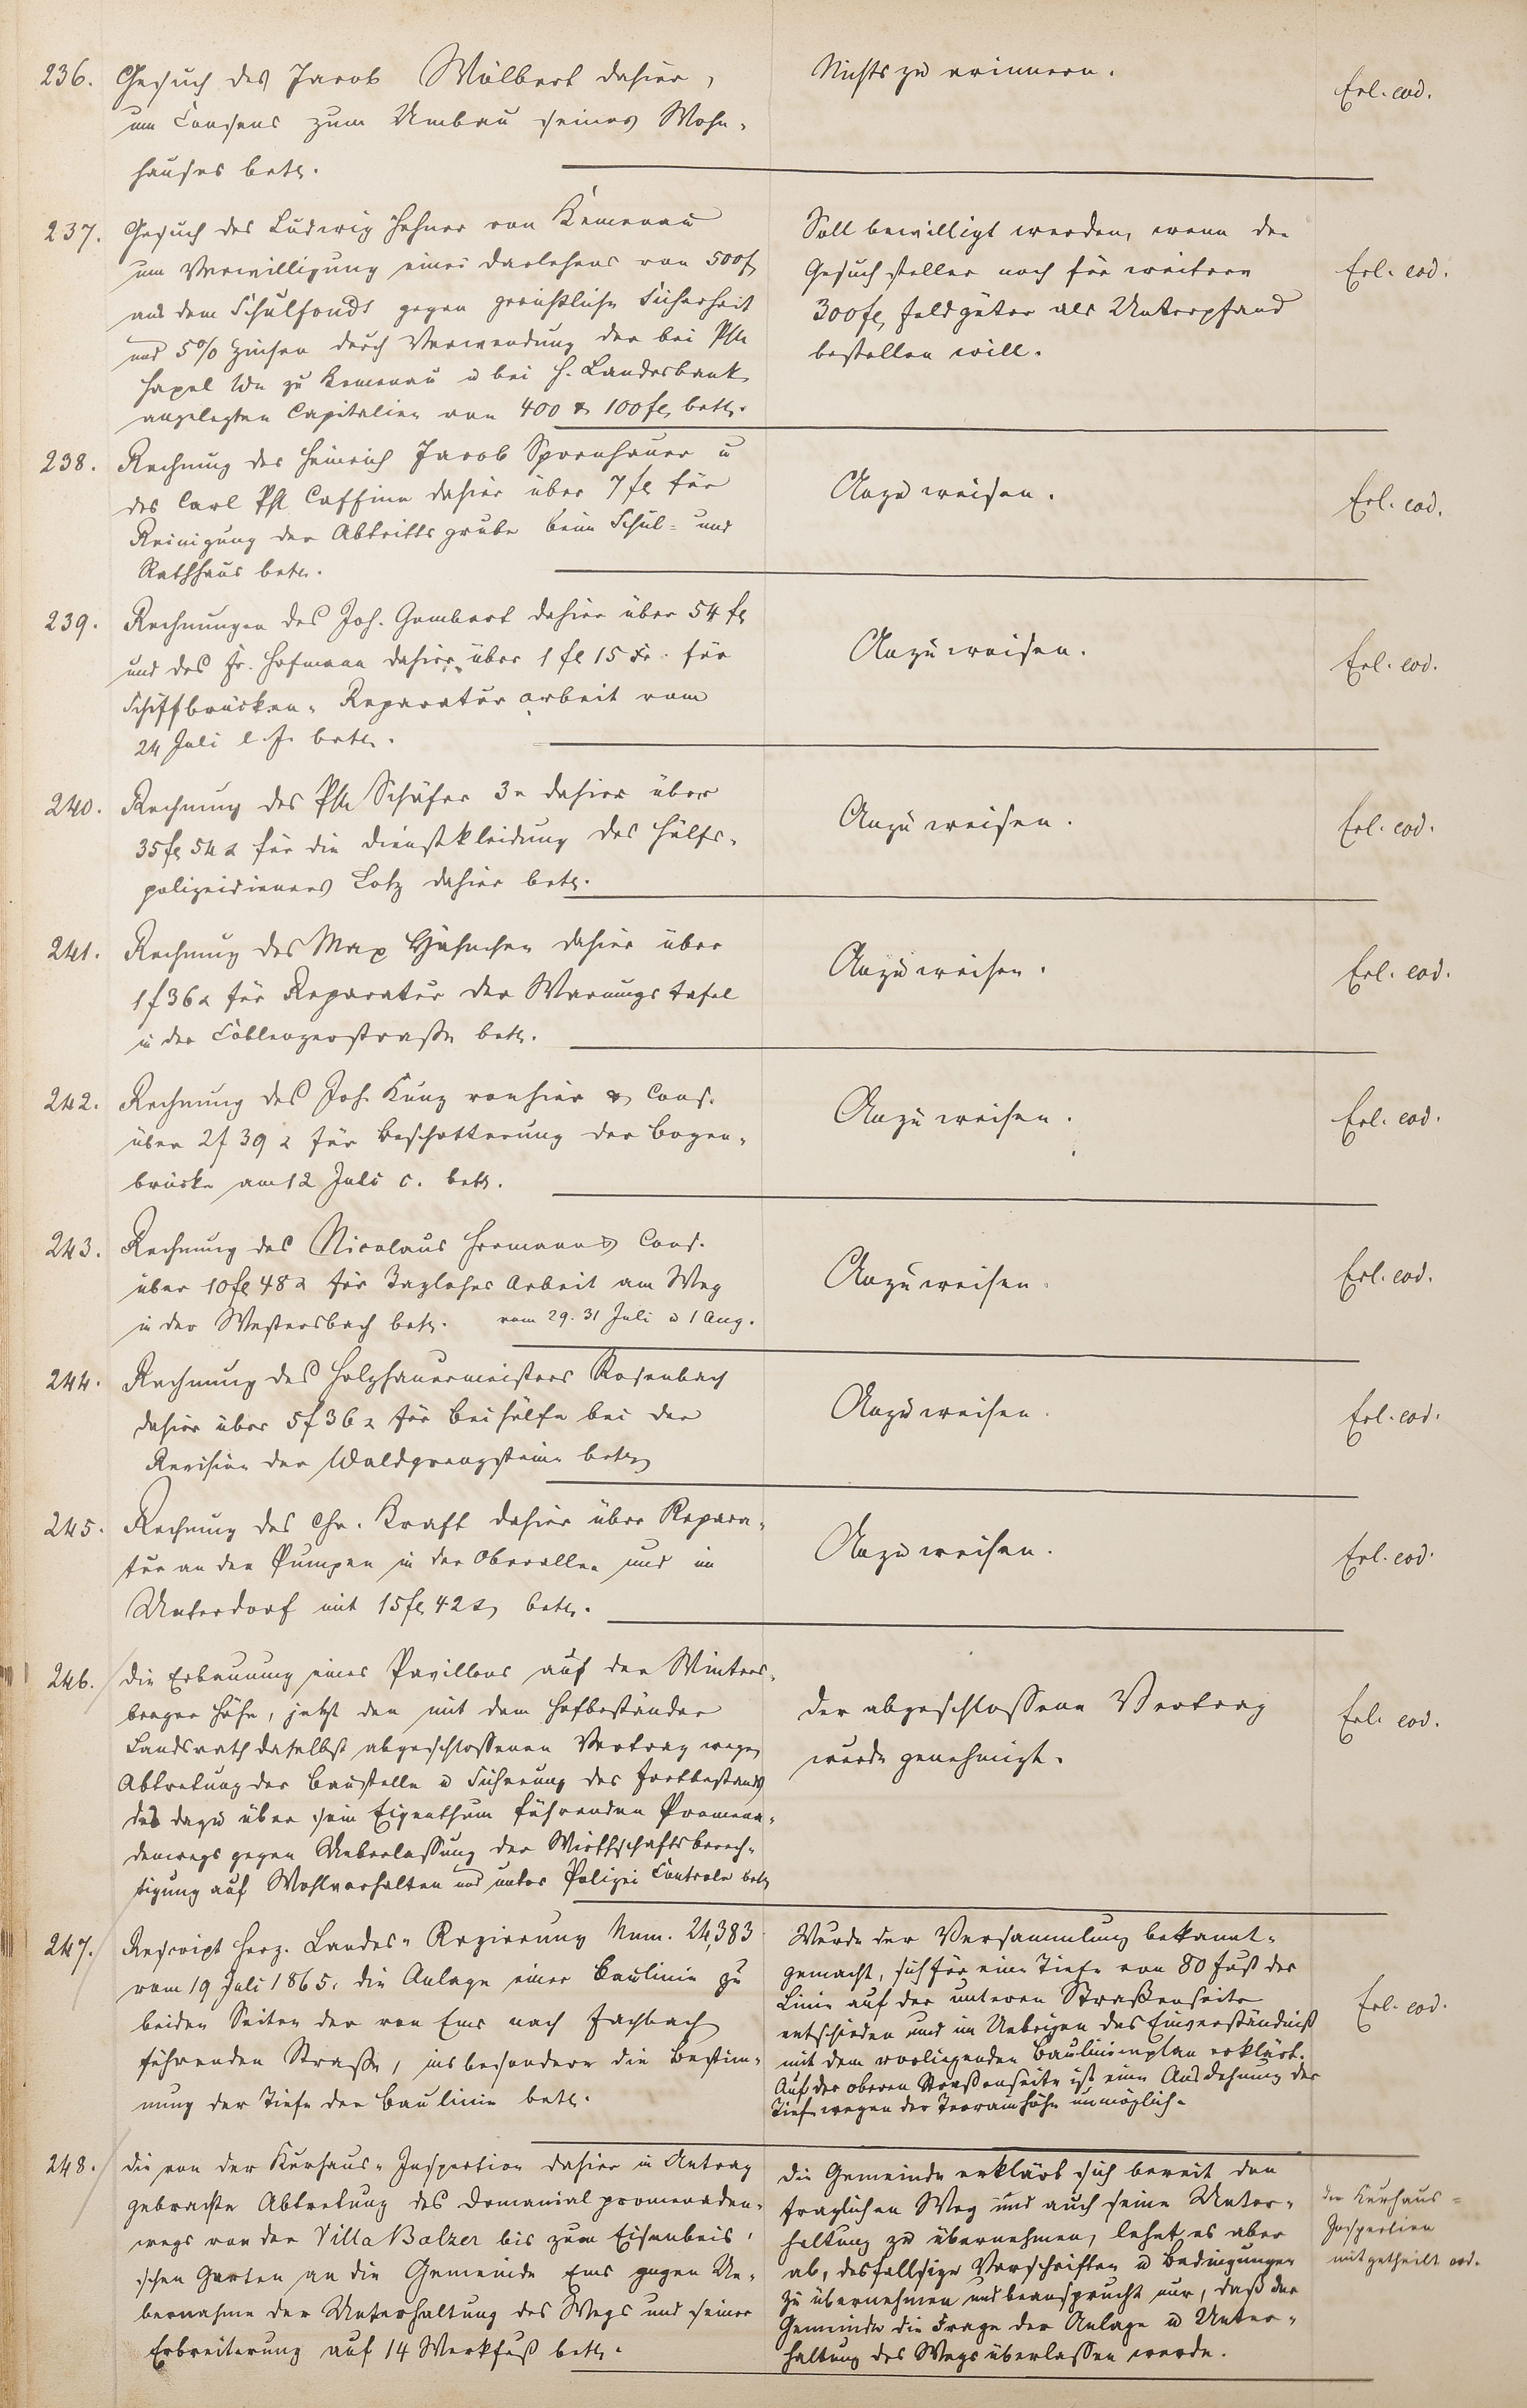 236. Gesuch des Jacob Wölbert dahier,
um Consens zum Umbau seines Wohn-
hauses betr.
Nichts zu erinnern.
Erl. eod.
237. Gesuch des Ludwig Hehner von Kemenau
um Verwilligung eines Darlehens von 500 f
aus dem Schulfonds gegen gerichtliche Sicherheit
und 5% Zinsen durch Verwendung der bei Ph.
zu Kemenau u bei H. Landesbank
angelegten Capitalien von 400 & 100 fl betr.
Soll bewilligt werden, wenn der
Gesuchsteller noch für weitere
300 fl Feldgüter als Unterpfand
bestellen will.
Erl. eod.
238. Rechnung des Heinrich Jacob Spornhauer u
des Carl Ph. Caffine dahier über 7 fl für
Reinigung der Abtrittsgrube beim Schul- und
Rathhaus betr.
Anzuweisen.
Erl. eod.
239. Rechnungen des Joh. Gombert dahier über 54 fl
und des Fr. Hofmann dahier über 1 fl 15 Kr. für
Schiffbrücken-Reparaturarbeit vom
24 Juli l. J. betr.
Anzuweisen.
Erl. eod.
240. Rechnung des Ph. Schäfer 3r dahier über
35 fl 54 x für die Dienstkleidung des Hülfs-
polizeidieners Lotz dahier betr.
Anzuweisen.
Erl. eod.
241. Rechnung des Max dahier über
1 f 36 x für Reparatur der Warnungstafel
in der Coblenzerstraße betr.
Anzuweisen.
Erl. eod.
242. Rechnung des Joh. Kunz von hier & Cons.
über 2 f 39 x für Beschotterung der Bogen-
brücke am 12 Juli c. betr.
Anzuweisen.
Erl. eod.
243. Rechnung des Nicolaus Hermann & Cons.
über 10 fl 48 x für Taglohn Arbeit am Weg
in der Westersbach betr. vom 29. 31 Juli u 1 Aug.
Anzuweisen.
Erl. eod.
244. Rechnung des Holzhauermeisters Rosenbach
dahier über 5 f 36 x für Beihülfe bei der
Revision der Waldgrenzsteine betr.
Anzuweisen.
Erl. eod.
245. Rechnung des Chr. Kraft dahier über Repara-
tur an den Pumpen in der Oberallee und im
Unterdorf mit 15 fl 42 x betr.
Anzuweisen.
Erl. eod.
246. die Erbauung eines Pavillons auf der Winters-
berger Höhe, jetzt den mit dem Hofbeständer
Landsrath daselbst abgeschlossenen Vertrag wegen
Abtretung der Baustelle u des Fortbestands
des dazu über sein Eigenthum führenden Promena-
denwegs gegen Ueberlassung der Wirthschaftsberech-
tigung auf Wohlverhalten und unter Polizei Controle betr.
der abgeschlossene Vertrag
wurde genehmigt.
Erl. eod.
247. Rescript Herz. Landes-Regierung Num. 24,383
vom 19 Juli 1865, die Anlage einer Baulinie zu
beiden Seiten der von Ems nach Fachbach
führenden Straße, insbesondere die Bestim-
mung der Tiefe der Baulinie betr.
Wurde der Versammlung bekannt-
gemacht, sich für eine Tiefe von 80 Fuß der
Linie auf der unteren Straßenseite
entschieden und im Uebrigen das Einverständniß
mit dem vorliegenden Baulinienplan erklärt.
Auf der oberen Straßenseite ist eine Ausdehnung der
Tiefe wegen der Terrainhöhe unmöglich.
Erl. eod.
248. die von der Kurhaus-Inspection dahier in Antrag
gebrachte Abtretung des Domanialpromenaden-
wegs von der Villa Balzer bis zum Eisenbeis-
schen Garten an die Gemeinde Ems gegen Ue-
bernahme der Unterhaltung des Wegs und seiner
Erbreiterung auf 14 Werkfuß betr.
die Gemeinde erklärt sich bereit den
fraglichen Weg und auch seine Unter-
haltung zu übernehmen, lehnt es aber
ab, desfallsige Vorschriften u Bedingungen
zu übernehmen und beansprucht nur, daß der
Gemeinde die Frage der Anlage u Unter-
haltung des Wegs überlassen werde.
der Kurhaus-
Inspection
mitgetheilt eod.